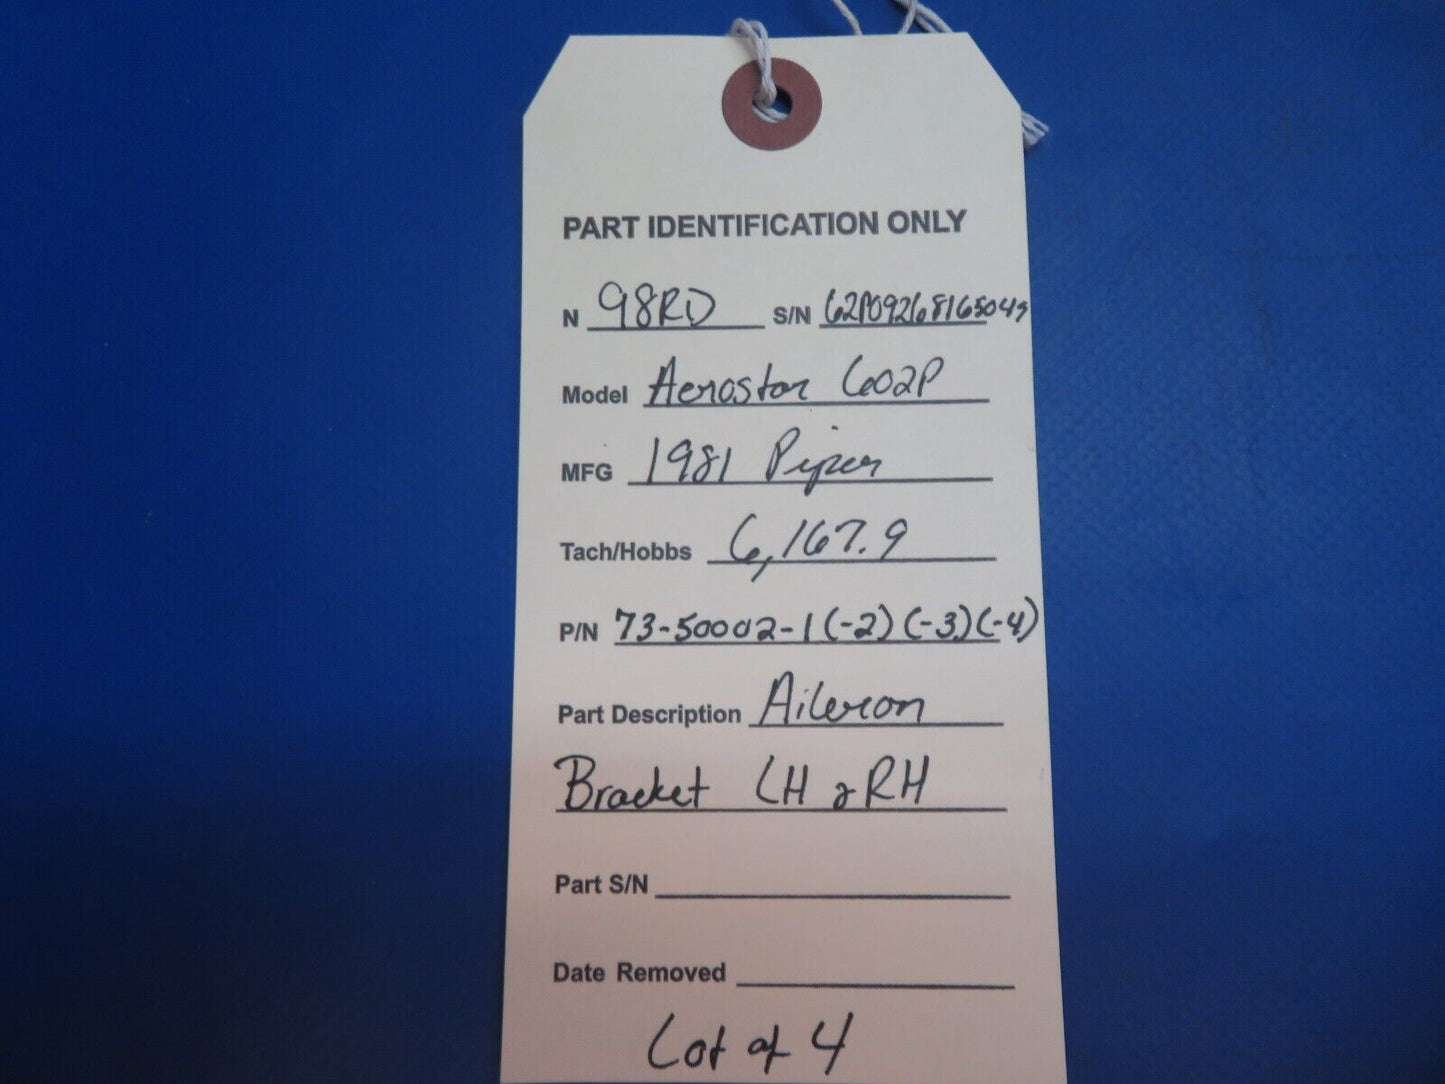 PART IDENTIFICATION ONLY
N 98RD S/N 62P09268165049
Model Aerostar 602P
MFG 1981 Piper
Tach/Hobbs 6,167.9
P/N 73-50002-1 (-2) (-3) (-4)
Part Description Aileron
Bracket LH & RH
Part S/N
Date Removed
Lot of 4